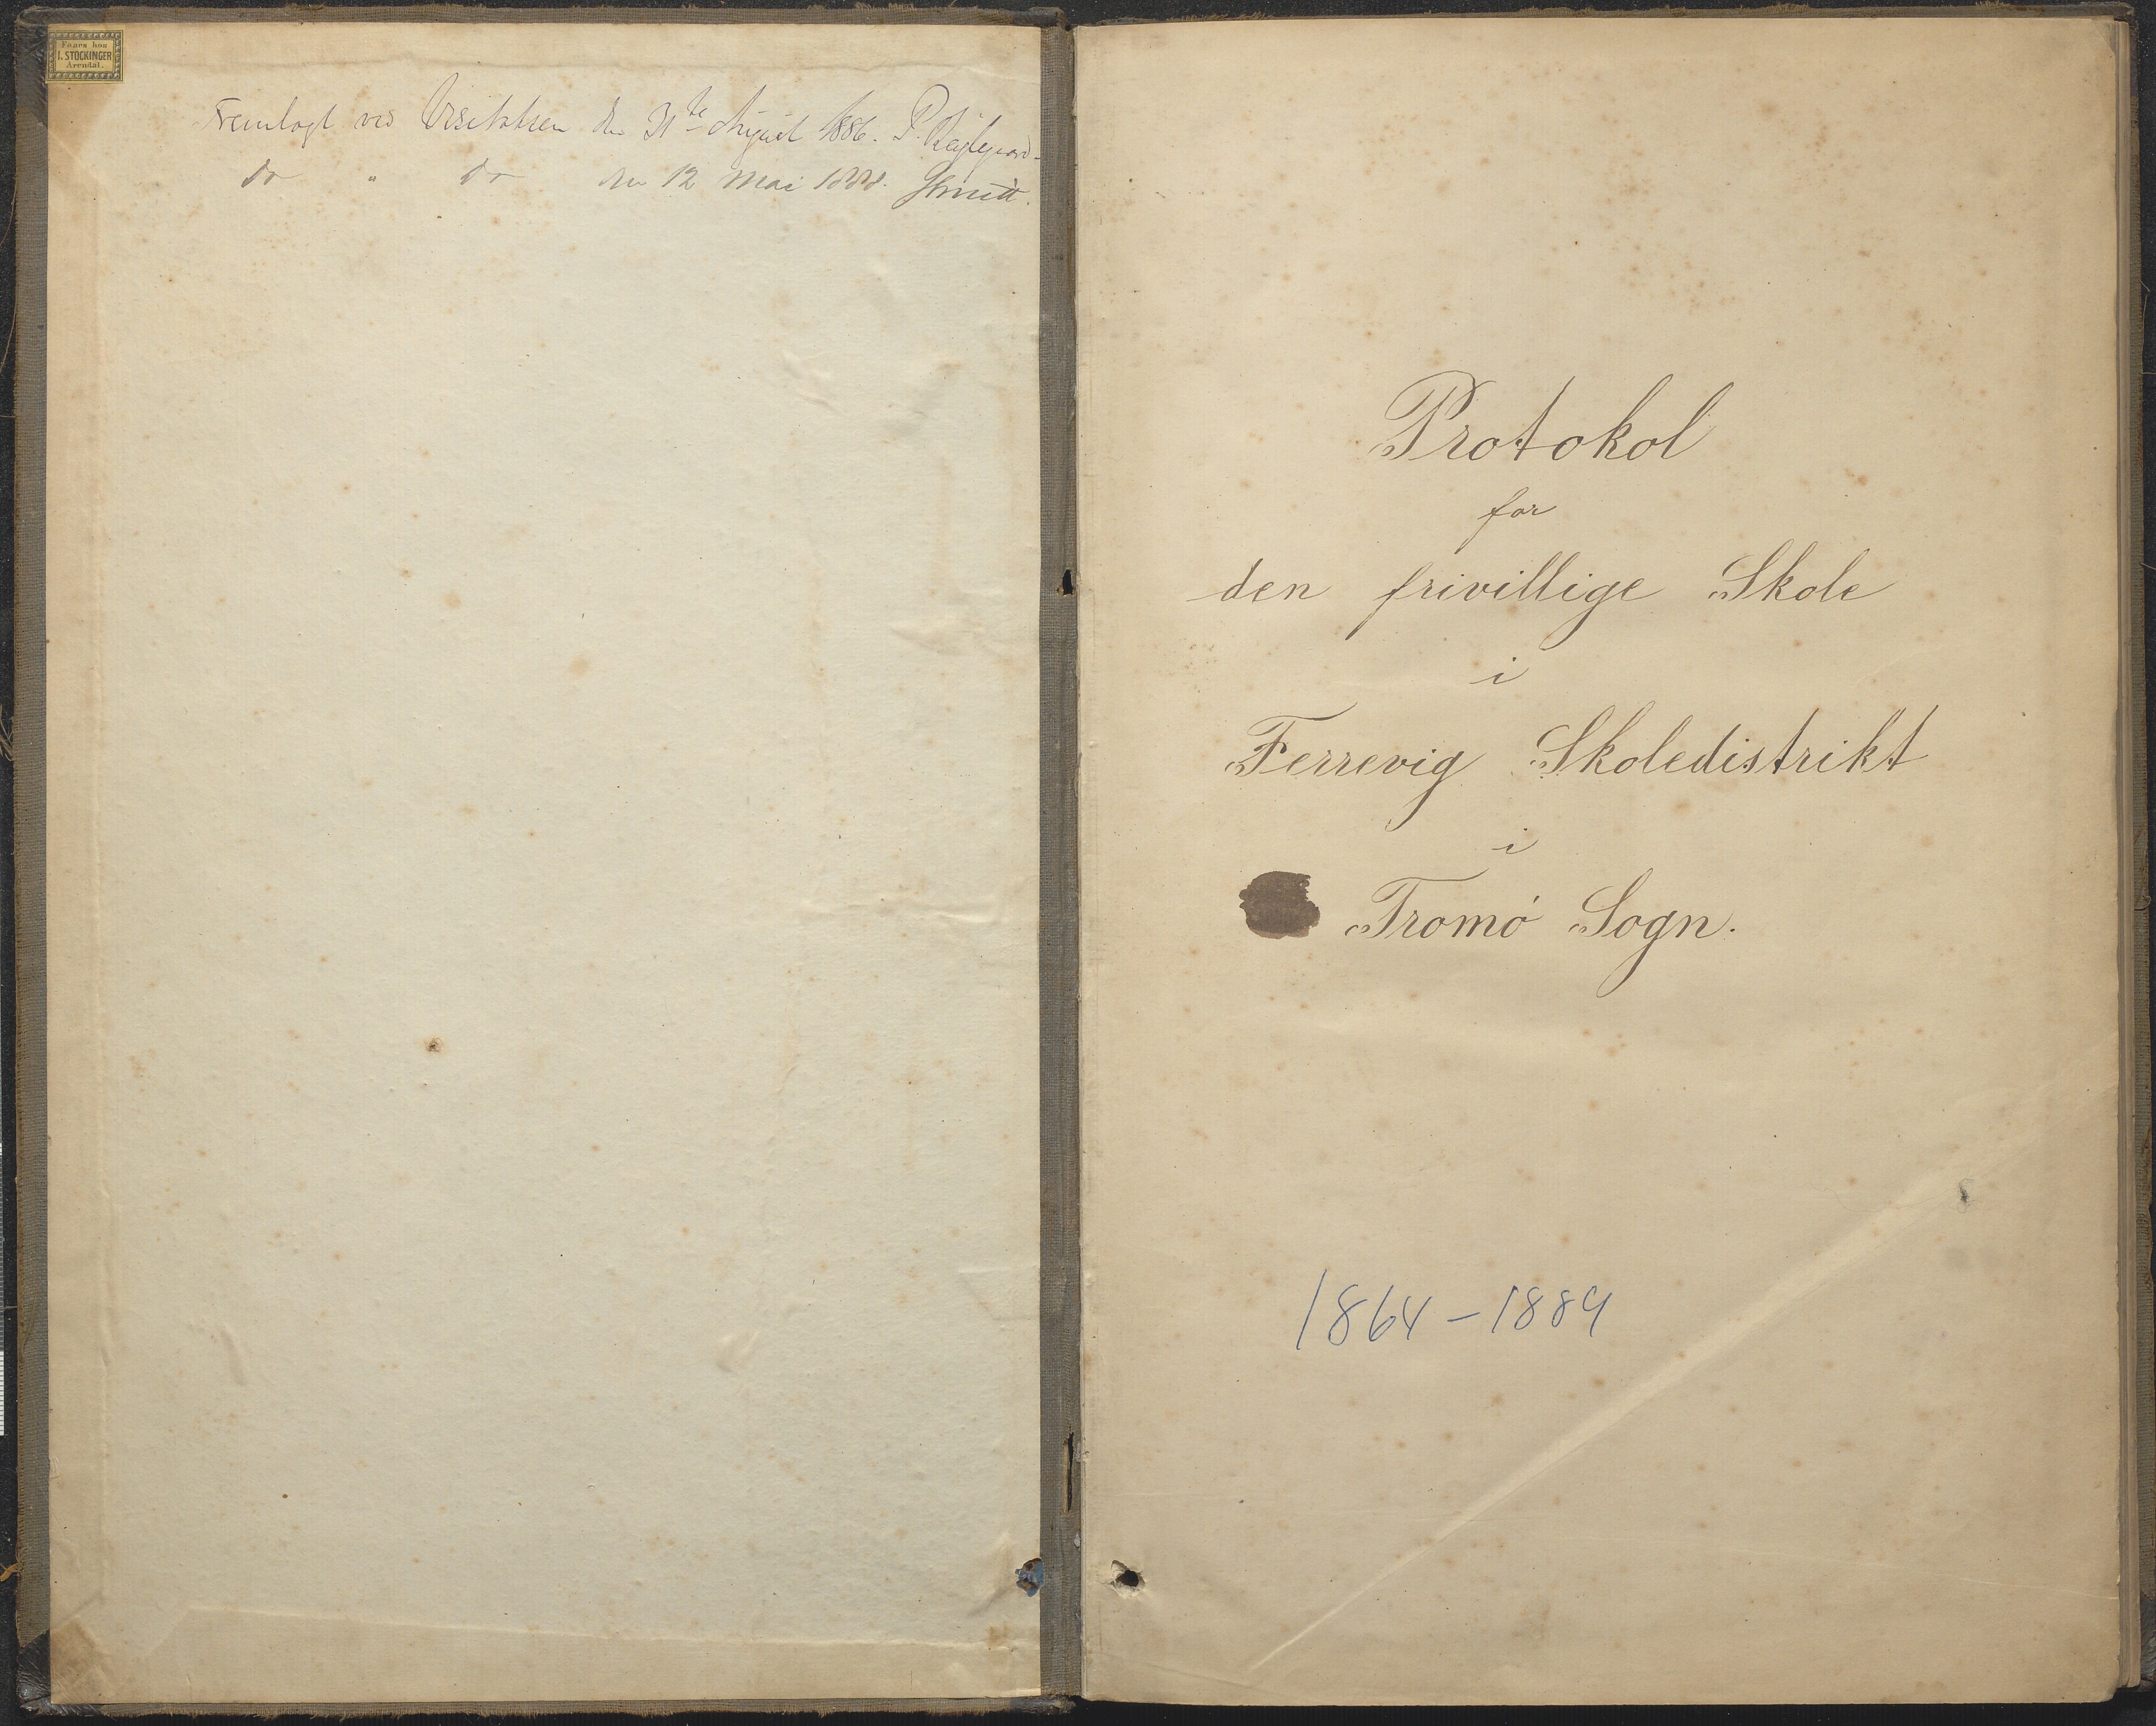 Faaes hos
I. STOCKINGER
Arendal.
Fremlagt ved Visitatsen den 31te August 1886. P.
do " do den 12 Mai 1888. Smitt.
Protokol
for
den frivillige Skole
i
Færrevig Skoledistrikt
i
Tromø Sogn.
1864-1889